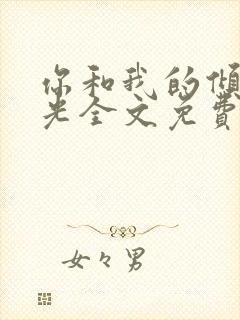 你和我的倾
光全文免費
女々男